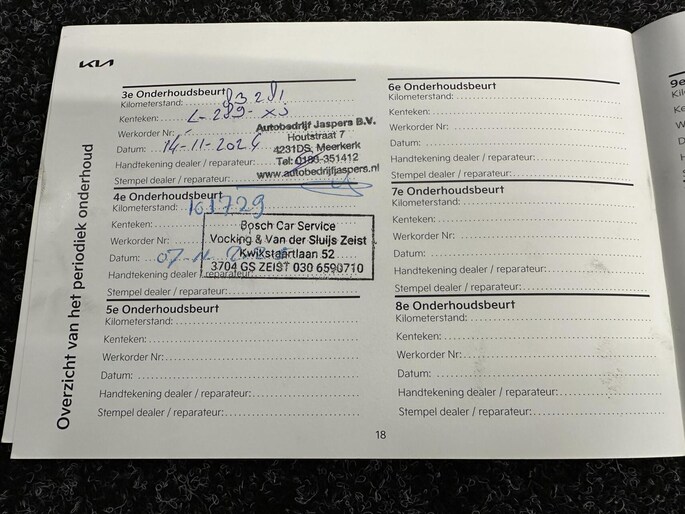 KIA
Overzicht van het periodiek onderhoud
3e Onderhoudsbeurt
Kilometerstand: 83.281
Kenteken: L-289-XJ
Werkorder Nr:
Datum: 14-11-2024
Handtekening dealer / reparateur:
Stempel dealer / reparateur:
Autobedrijf Jaspers B.V.
Houtstraat 7
4231DS, Meerkerk
Tel: 0183-351412
www.autobedrijfjaspers.nl
4e Onderhoudsbeurt
Kilometerstand: 163729
Kenteken:
Werkorder Nr:
Datum: 07
Handtekening dealer / reparateur:
Bosch Car Service
Vocking & Van der Sluijs Zeist
Kwikstaartlaan 52
3704 GS ZEIST 030 6590710
5e Onderhoudsbeurt
Kilometerstand:
Kenteken:
Werkorder Nr:
Datum:
Handtekening dealer / reparateur:
Stempel dealer / reparateur:
6e Onderhoudsbeurt
Kilometerstand:
Kenteken:
Werkorder Nr:
Datum:
Handtekening dealer / reparateur:
Stempel dealer / reparateur:
7e Onderhoudsbeurt
Kilometerstand:
Kenteken:
Werkorder Nr:
Datum:
Handtekening dealer / reparateur:
Stempel dealer / reparateur:
8e Onderhoudsbeurt
Kilometerstand:
Kenteken:
Werkorder Nr:
Datum:
Handtekening dealer / reparateur:
Stempel dealer / reparateur:
18
9e